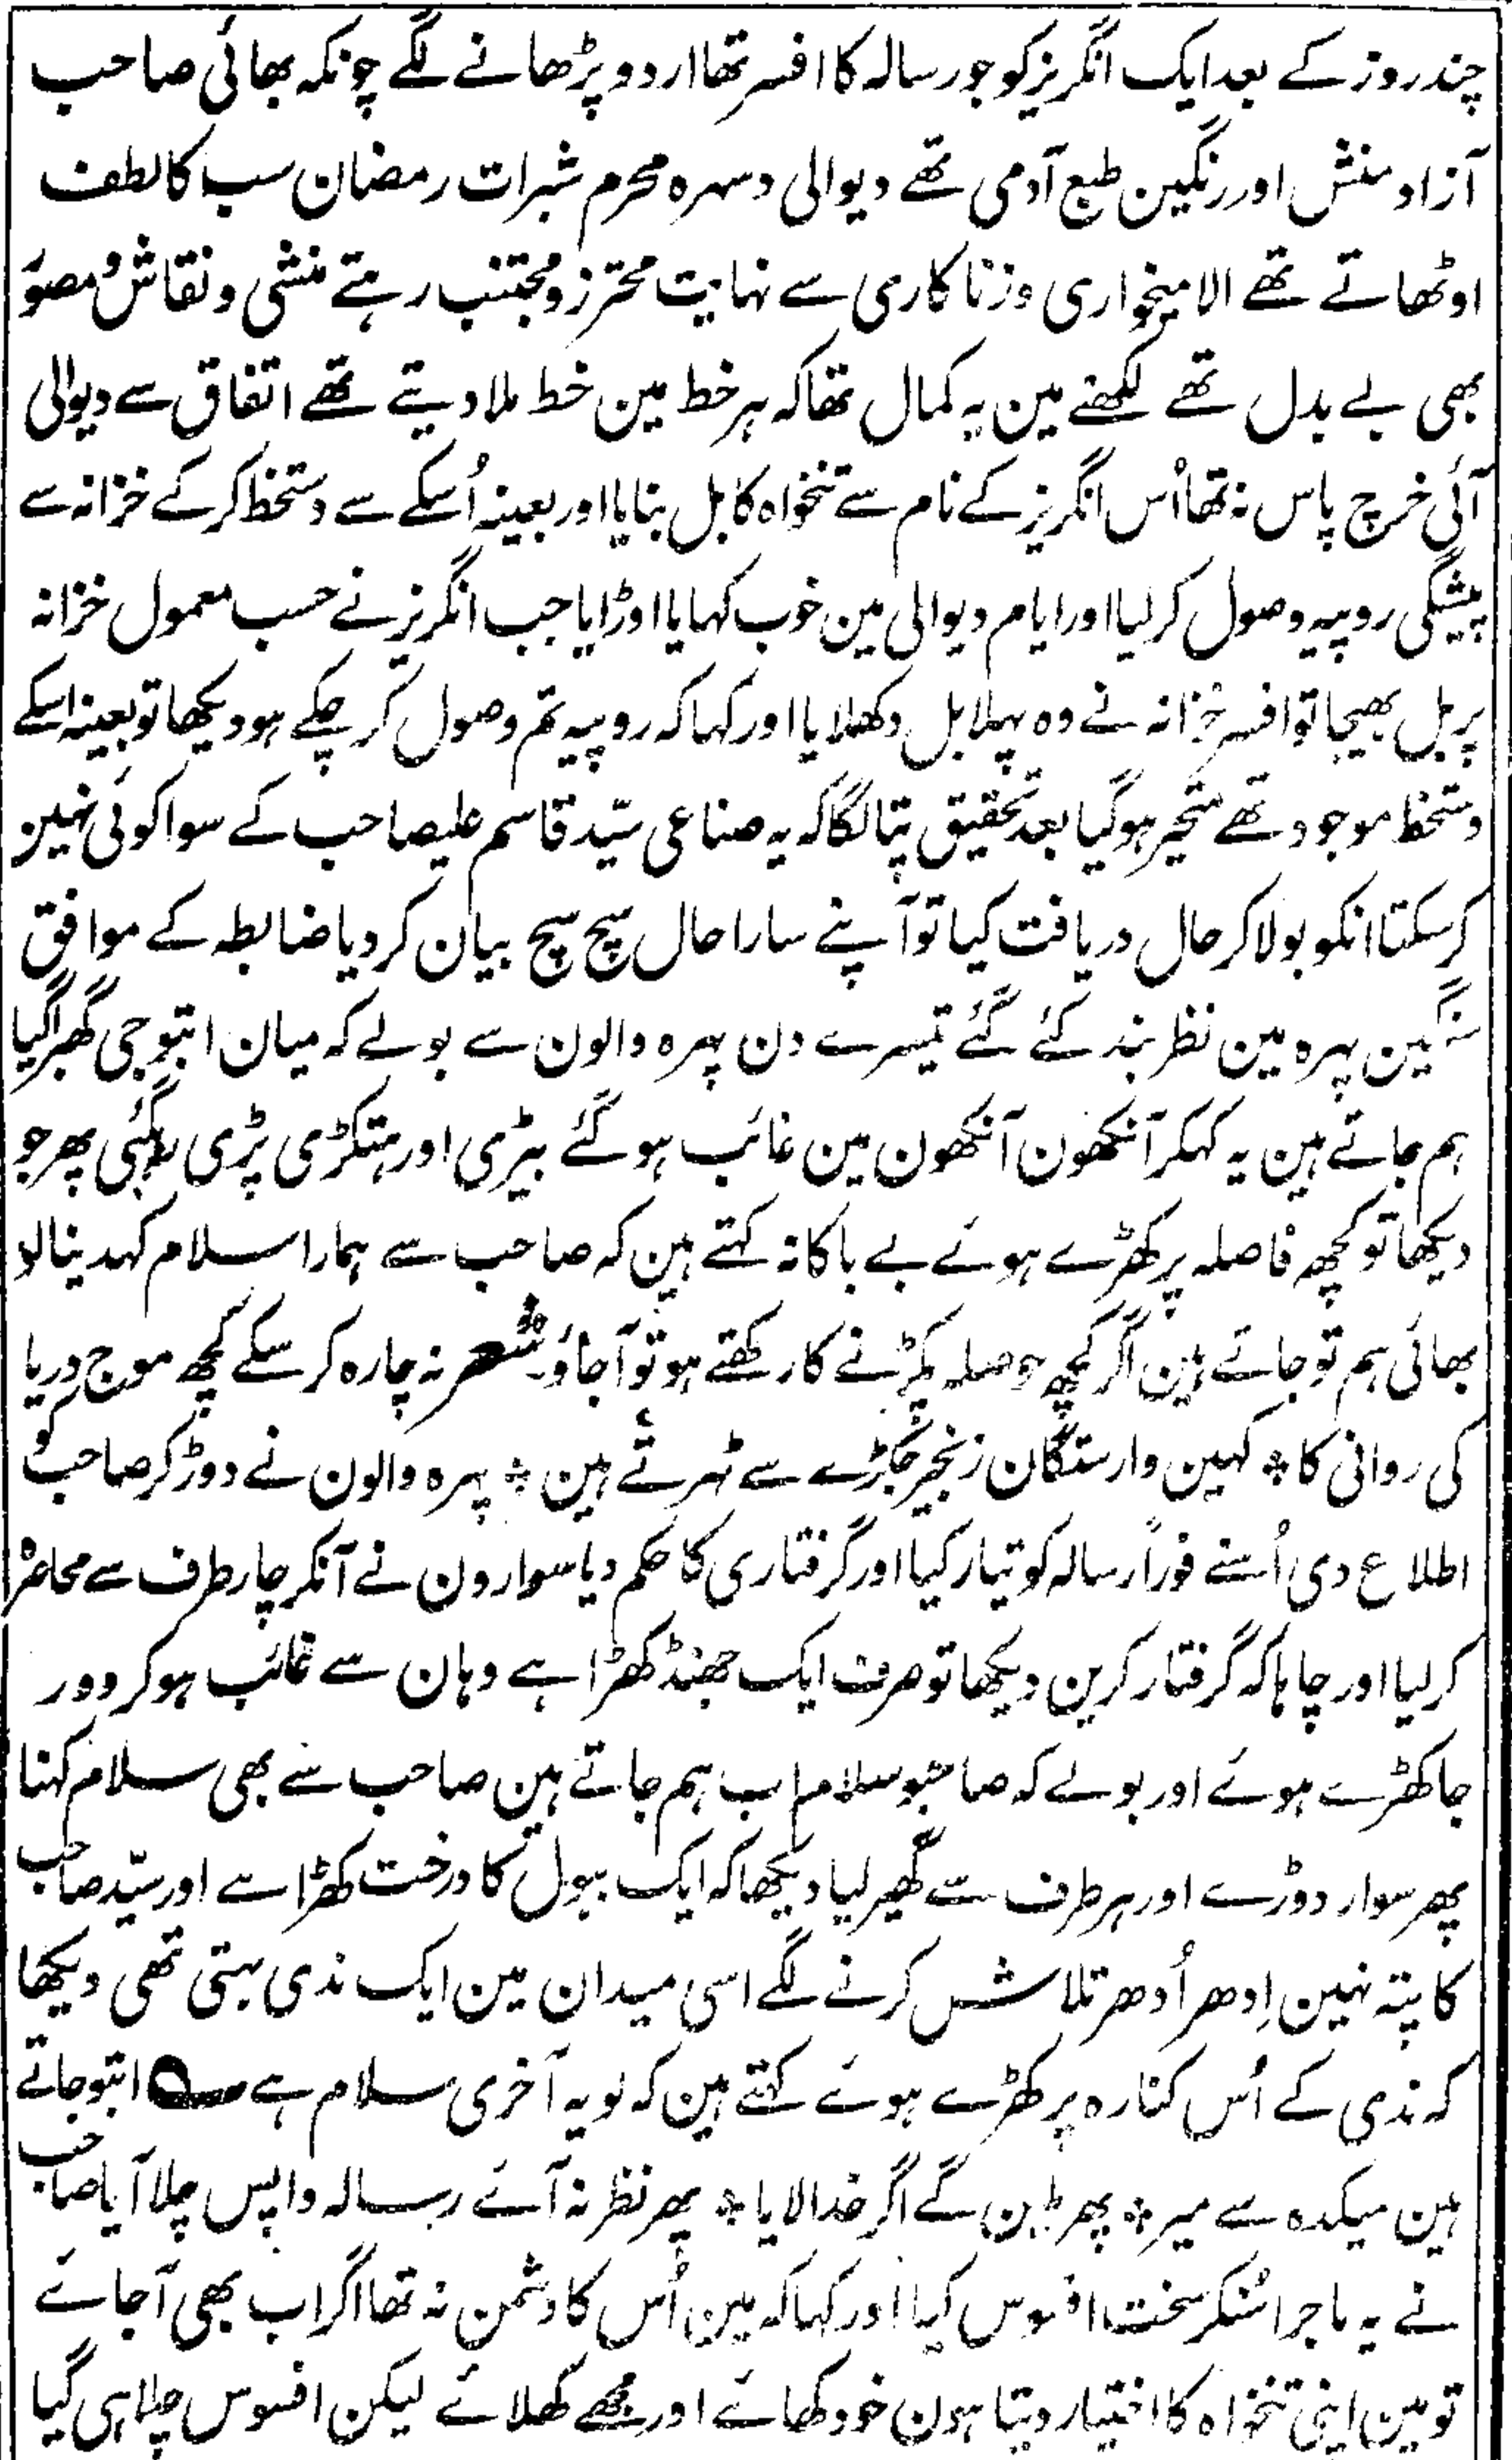 چند روز کے بعد ایک انگریز کو جو رسالہ کا افسر تھا اردو پڑھانے لگے چونکہ بھائی صاحب
آزاد منش اور رنگین طبع آدمی تھے دیوالی دسہرہ محرم شبرات رمضان سب کا لطف
اوٹھاتے تھے الا میخواری و زناکاری سے نہایت محترز و مجتنب رہتے منشی و نقاش و مصوّر
بھی بے بدل تھے لکھنے مین یہ کمال تھا کہ ہر خط مین خط ملا دیتے تھے اتفاق سے دیوالی
آئی خرچ پاس نہ تھا اُس انگریز کے نام سے تنخواہ کا بل بنایا اور بعینہ اُسکے سے دستخط کر کے خزانہ سے
پیشگی روپیہ وصول کر لیا اور ایام دیوالی مین خوب کہایا اوڑایا جب انگریز نے حسب معمول خزانہ
پر بل بھیجا تو افسر خزانہ نے وہ پہلا بل دکھلایا اور کہا کہ روپیہ تم وصول کر چکے ہو دیکھا تو بعینہ اسکے
دستخط موجود تھے متحیر ہو گیا بعد تحقیق پتا لگا کہ یہ صناعی سیّد قاسم علیصاحب کے سوا کوئی نہین
کر سکتا انکو بولا کر حال دریافت کیا تو آپنے سارا حال سچ سچ بیان کر دیا ضابطہ کے موافق
سنگین پہرہ مین نظر بند کئے گئے تیسرے دن پہرہ والون سے بولے کہ میان ابتو جی گھبرا گیا
ہم جاتے ہین یہ کہکر آنکھون آنکھون مین غائب ہو گئے بیڑی اور ہتکڑی پڑی رہگئی پھر جو
دیکھا تو کچھ فاصلہ پر کھڑے ہوئے بے باکانہ کہتے ہین کہ صاحب سے ہمارا سلام کہدینا لو
بھائی ہم تو جاتے ہین اگر کچھ حوصلہ پکڑنے کا رکھتے ہو تو آ جاؤ شعر نہ چارہ کر سکے کچھ موج دریا
کی روانی کا ٭ کہین وارستگان زنجیر جکڑے سے ٹہرتے ہین ٭ پہرہ والون نے دوڑ کر صاحب کو
اطلاع دی اُسنے فوراً رسالہ کو تیار کیا اور گرفتاری کا حکم دیا سوارون نے آنکر چار طرف سے محاصرہ
کر لیا اور چاہا کہ گرفتار کرین دیکھا تو صرف ایک جھنڈ کھڑا ہے وہان سے غائب ہو کر دور
جا کھڑے ہوئے اور بولے کہ صاحبو سلام اب ہم جاتے ہین صاحب سے بھی سلام کہنا
پھر سوار دوڑے اور ہر طرف سے گھیر لیا دیکھا کہ ایک ببول کا درخت کھڑا ہے اور سیّد صاحب
کا پتہ نہین اِدھر اُدھر تلاش کرنے لگے اسی میدان مین ایک ندی بہتی تھی دیکھا
کہ ندی کے اُس کنارہ پر کھڑے ہوئے کہتے ہین کہ لو یہ آخری سلام ہے ؎ ابتو جاتے
ہین میکدہ سے میر ٭ پھر ملین گے اگر خدا لایا ٭ پھر نظر نہ آئے رسالہ واپس چلا آیا صاحب
نے یہ ماجرا سُنکر سخت افسوس کیا اور کہا کہ مین اُس کا دشمن نہ تھا اگر اب بھی آ جائے
تو مین اپنی تنخواہ کا اختیار دیتا ہون خود کھائے اور مجھے کھلائے لیکن افسوس چلا ہی گیا